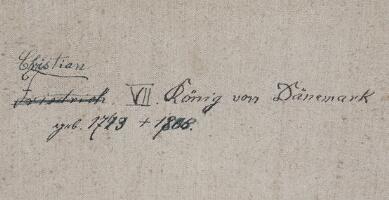 Christian
Friedrich VII. König von Dänemark
geb. 1749 + 1808.